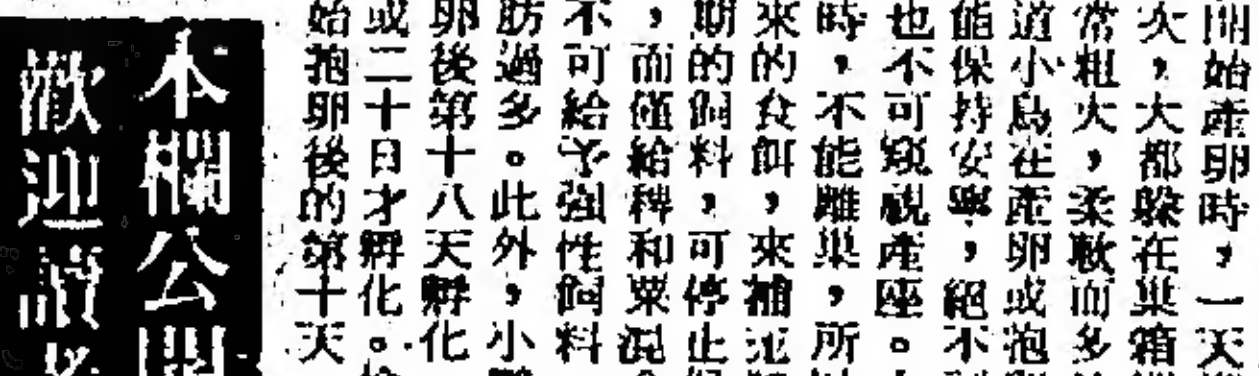 開始產卵時，一天
次，大都躲在巢箱
常粗大，柔軟而多
道小鳥在產卵或抱
能保持安寧，絕不
也不可窺視產座。
時，不能離巢，所
來的食餌，來補充
期的飼料，可停止
，而僅給稗和粟混
不可給予強性飼料
肪過多。此外，小
卵後第十八天孵化
或二十日才孵化。
始抱卵後的第十天
本欄公開
歡迎讀者